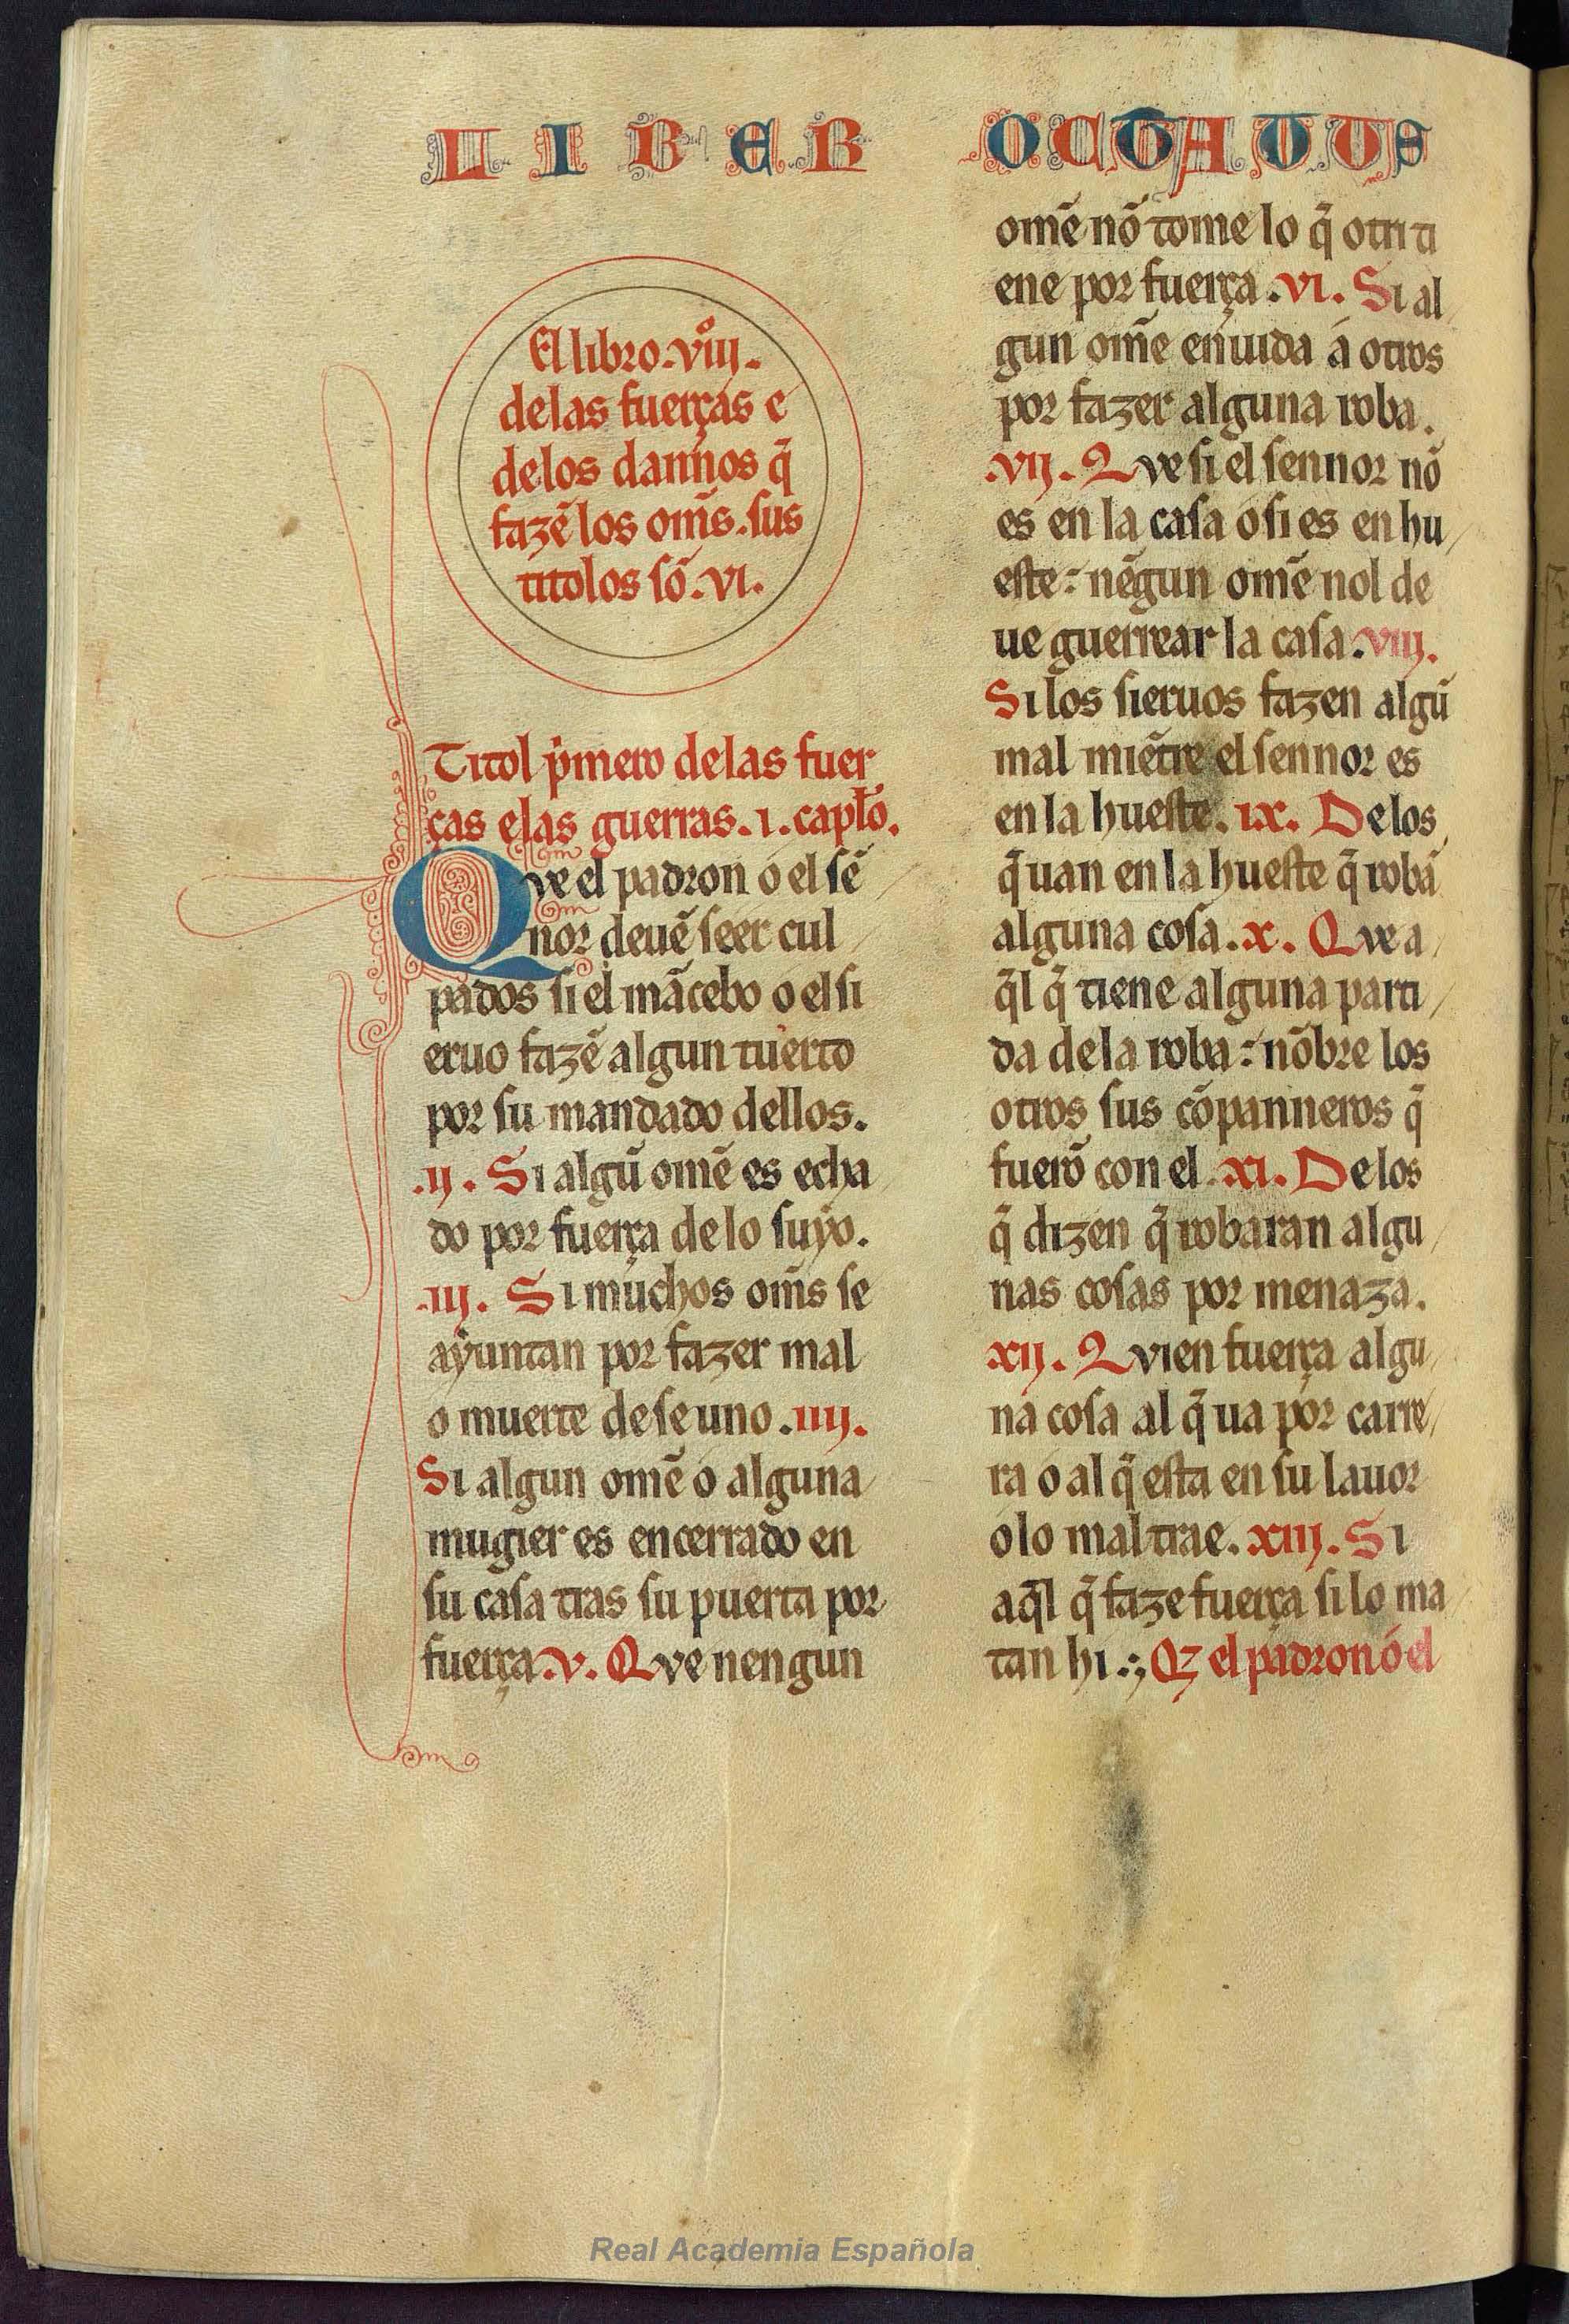 LIBER OCTAVUS
El libro .viijº.
delas fuerças e
delos dannos q̃
fazẽ los om̃s. sus
titolos sõ .vi.
Titol p̍mero delas fuer
ças elas guerras .i. capłõ.
Qve el padron o el sẽ
nor deuẽ seer cul
pados si el mãcebo o el si
eruo fazẽ algun tuerto
por su mandado dellos.
.ij. Si algũ omẽ es echa
do por fuerça delo suyo.
.iij. Si muchos om̃s se
ayuntan por fazer mal
o muerte de seuno .iiij.
Si algun omẽ o alguna
mugier es encerrado en
su casa tras su puerta por
fuerça .v. Qve nengun
omẽ nõ tome lo q̃ otri ti
ene por fuerça .vi. Si al
gun om̃e enuida á otros
por fazer alguna roba.
.vij. Qve si el sennor nõ
es en la casa o si es en hu
este: nẽgun omẽ nol de
ue guerrear la casa .viij.
Si los sieruos fazen algũ
mal miẽtre el sennor es
en la hueste. ix. Delos
q̃ uan en la hueste q̃ robã
alguna cosa .x. Qve a
q̃l q̃ tiene alguna parti
da dela roba: nõbre los
otros sus cõpanneros q̃
fuerõ con el .xi. Delos
q̃ dizen q̃ robaran algu
nas cosas por menaza.
xij. Qvien fuerça algu
na cosa al q̃ ua por carre
ra o al q̃ esta en su lauor
o lo maltrae. xiij. Si
aq̃l q̃ faze fuerça si lo ma
tan hi .; Qz el padron ó el
Real Academia Española